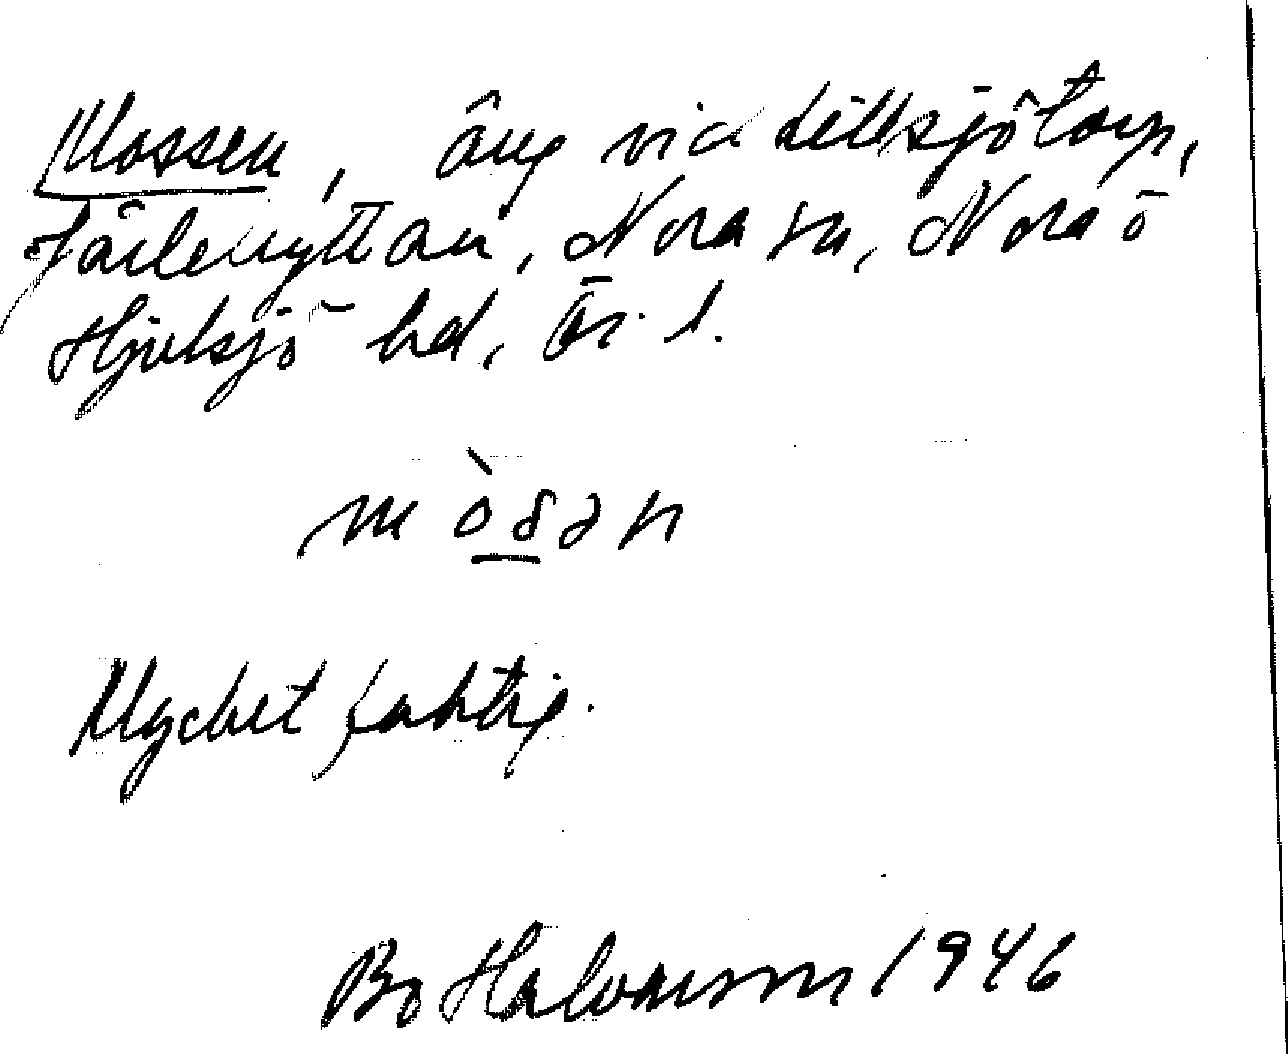 Mossen, äng vid Lillsjötorp,
Järlehyttan, Nora sn, Nora ö
Hjulsjö hd, Ör. l.
mòsən
Mycket faktig.
Bo Halvarsson 1946